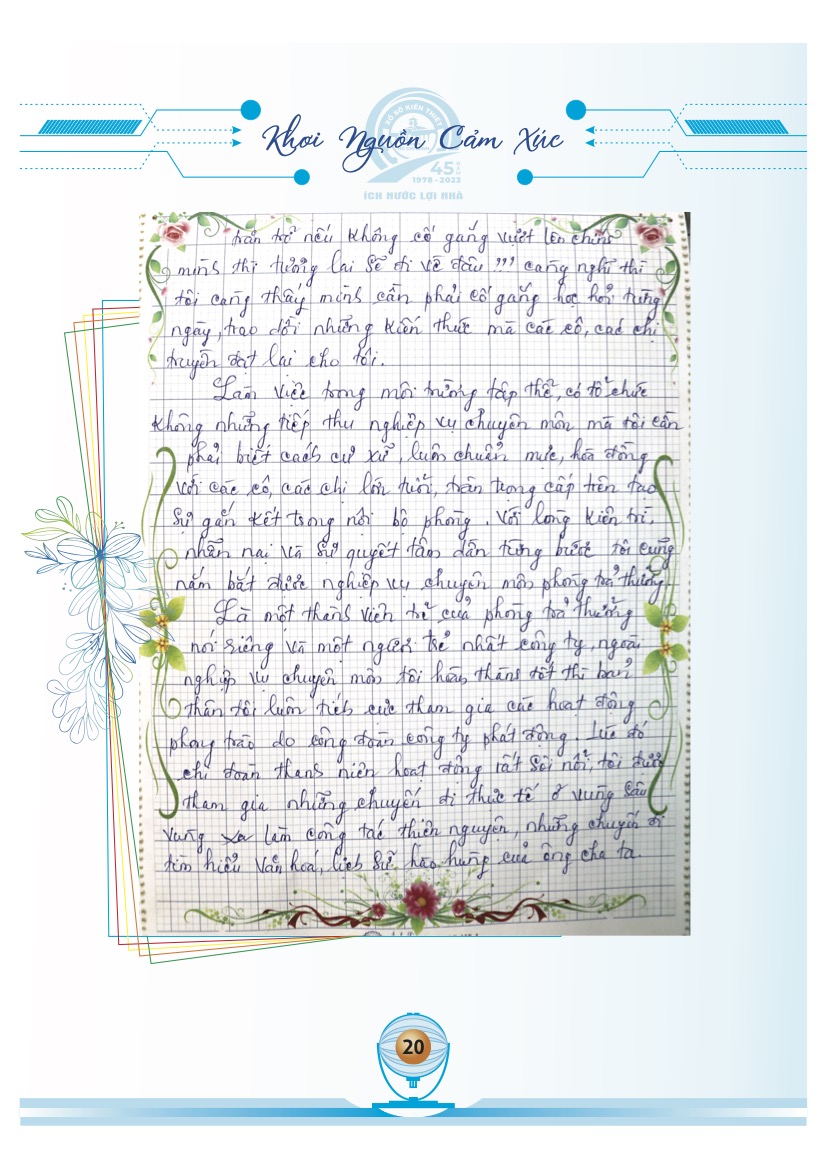 XỔ SỐ KIẾN THIẾT
Khơi Nguồn Cảm Xúc
45
1978 - 2023
ÍCH NƯỚC LỢI NHÀ
trăn trở nếu không cố gắng vượt lên chính
mình thì tương lai sẽ đi về đâu !!! càng nghĩ thì
tôi càng thấy mình cần phải cố gắng học hỏi từng
ngày, trao dồi những kiến thức mà các cô, các chị
truyền đạt lại cho tôi.
Làm việc trong môi trường tập thể, có tổ chức
không những tiếp thu nghiệp vụ chuyên môn mà tôi cần
phải biết cách cư xử, luôn chuẩn mực, hòa đồng
với các cô, các chị lớn tuổi, trân trọng cấp trên tạo
sự gắn kết trong nội bộ phòng. Với lòng kiên trì,
nhẫn nại và sự quyết tâm dần từng bước tôi cũng
nắm bắt được nghiệp vụ chuyên môn phòng trả thưởng.
Là một thành viên trẻ của phòng trả thưởng
nói riêng và một người trẻ nhất công ty, ngoài
nghiệp vụ chuyên môn tôi hoàn thành tốt thì bản
thân tôi luôn tích cực tham gia các hoạt động
phong trào do công đoàn công ty phát động. Lúc đó
chi đoàn thanh niên hoạt động rất sôi nổi, tôi được
tham gia những chuyến đi thực tế ở vùng sâu
vùng xa làm công tác thiện nguyện, những chuyến đi
tìm hiểu văn hoá, lịch sử hào hùng của ông cha ta.
20